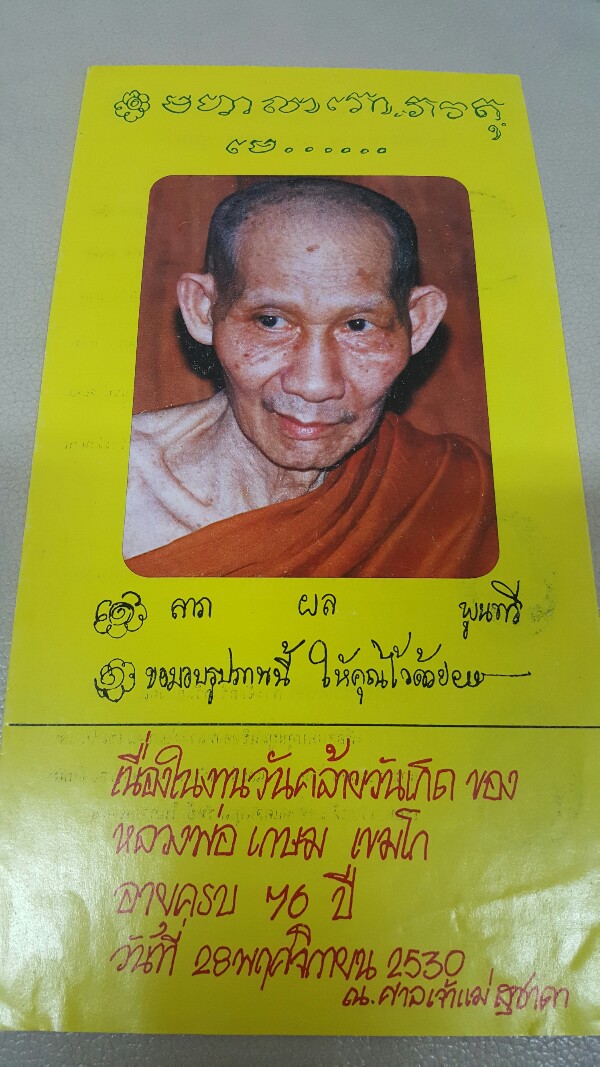 มหาลาโภ ภวตุ
เม......
๑ ลาภ ผล พูนทวี
๑ ขอมอบรูปภาพนี้ ให้คุณไว้ด้วย
เนื่องในงานวันคล้ายวันเกิด ของ
หลวงพ่อ เกษม เขมโก
อายุครบ 76 ปี
วันที่ 28 พฤศจิกายน 2530
ณ.ศาลเจ้าแม่สุชาดา